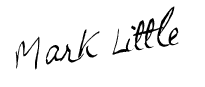 Mark Little